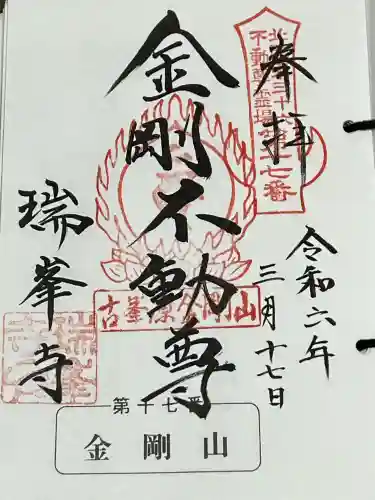 奉拝
北
三十六
不動尊霊場
第十七番
令和六年
三月十七日
金剛不動尊
山剛金
瑞峯寺
第十七番
金剛山